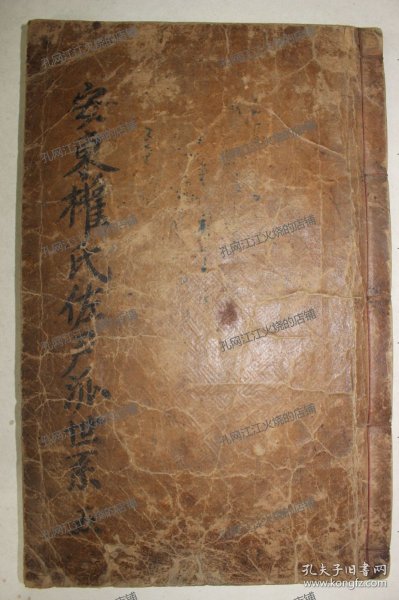 安東權氏佐尹派世系
孔网江江火烧的店铺
孔网江江火烧的店铺
孔网江江火烧的店铺
孔网江江火烧的店铺
孔网江江火烧的店铺
孔网江江火烧的店铺
孔网江江火烧的店铺
孔网江江火烧的店铺
孔夫子旧书网
www.kongfz.com